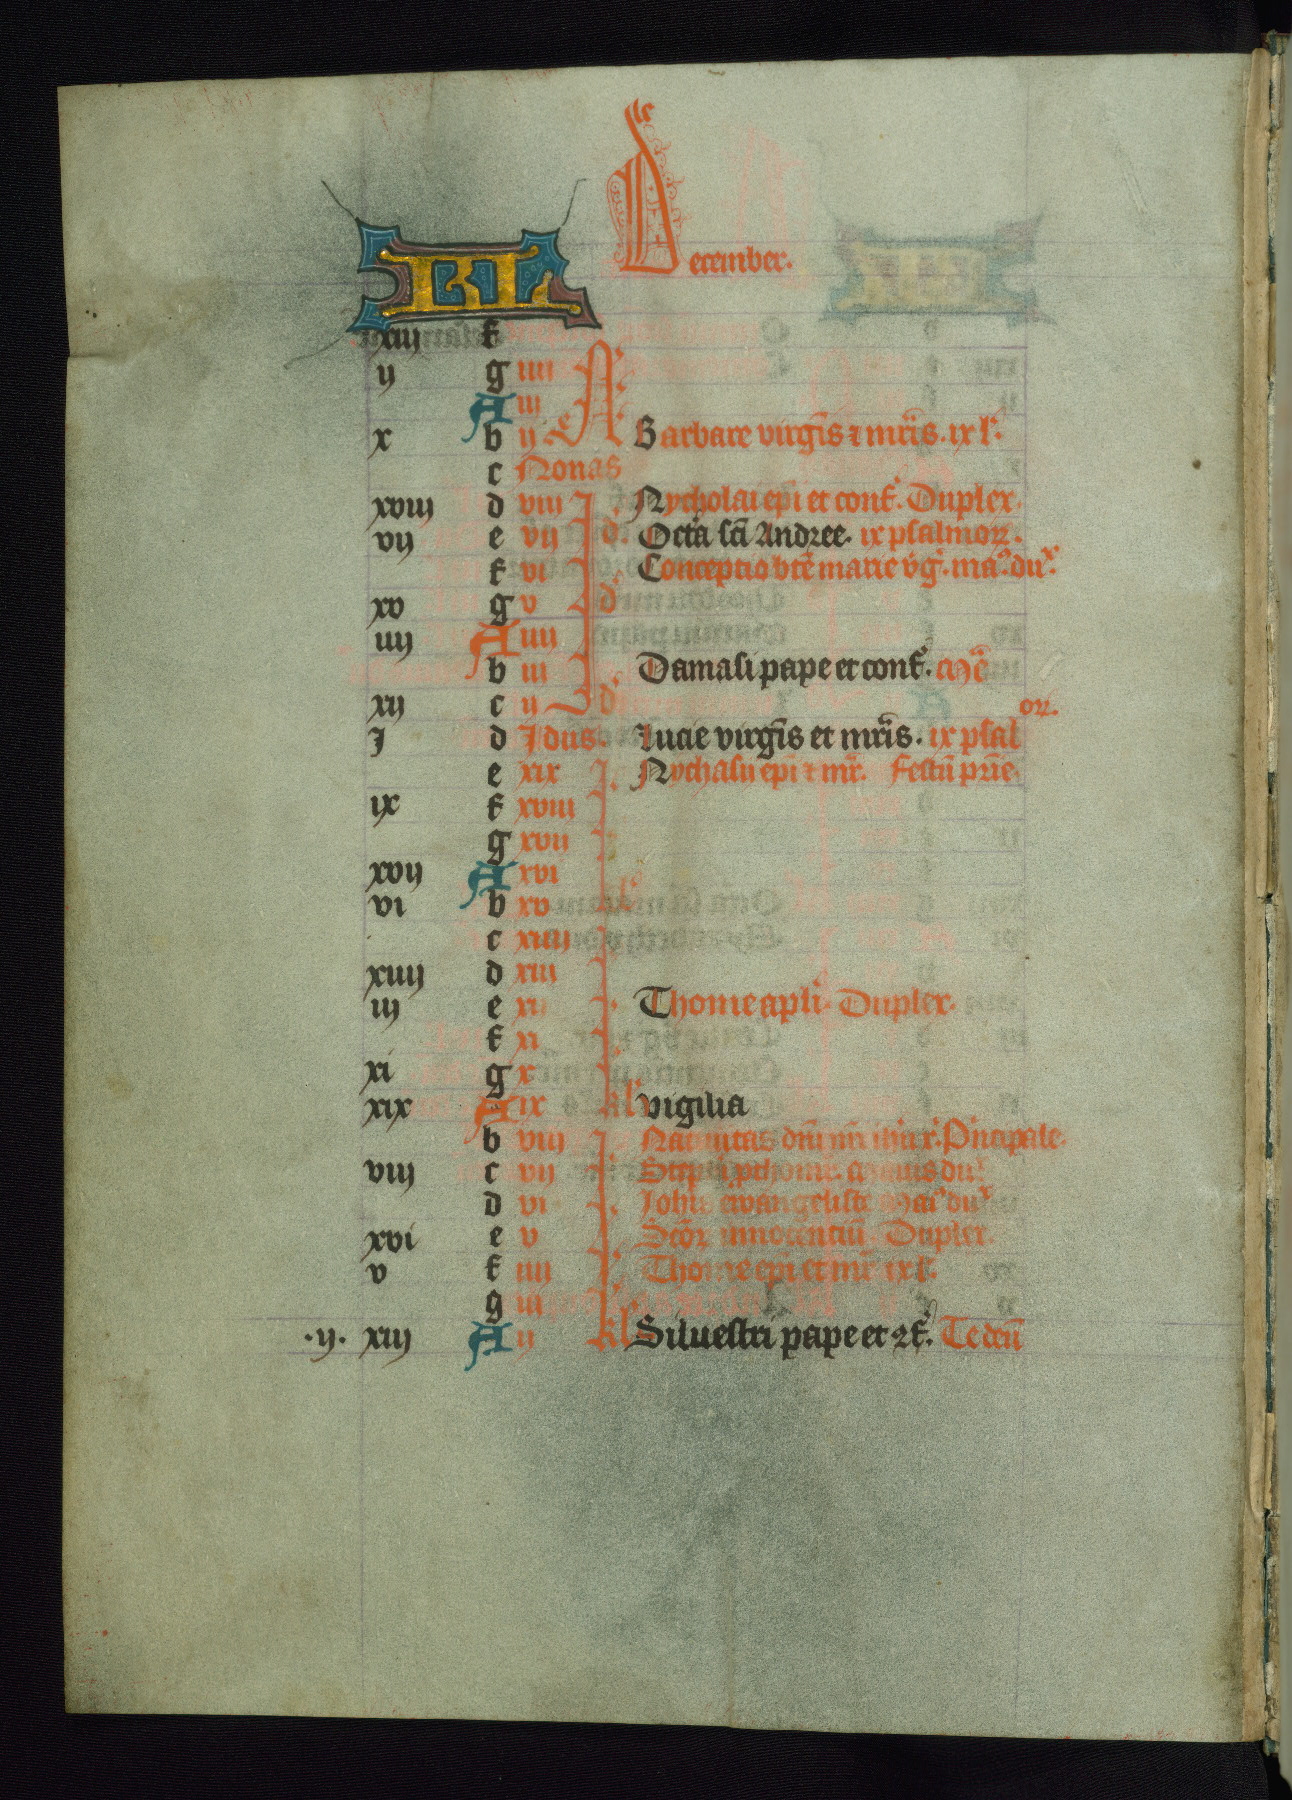 December.
KL
xiii f
ij g iiii N
A iii
x b ij Barbare virgīs ⁊ mr̄is. ix l'.
c Nonas
xviii d viii Nycholai ep̄i et conf'. Duplex.
vij e vij Id. Octa sc̄i Andree. ix psalmoꝝ.
f vi Conceptio bt̄e marie v̄g'. ma'. du'.
xv g v Id
iiij A iiii
b iii Damasi pape et conf'. Mē
xij c ij Id oꝝ.
j d Idus. Lucie virgīs et mr̄is. ix psal
e xix Nychasii ep̄i ⁊ mr̄. festū
ix f xviii
g xvij
xvij A xvi
vi b xv kl'
c xiiii
xiiij d xiii
iij e xi Thome apl̄i. Duplex.
f xi
xi g x
xix A ix kl' vigilia
b viii Natiuitas dn̄i nr̄i ih'u x'. P'ncipale.
viij c vij Steph' du'
d vi Joh'is ewangeliste ma' du'
xvi e v Sc̄oꝝ innocentiū. Duplex.
v f iiii Thome ep̄i et mr̄ ix l'.
g iii
.ij. xiij A ij kl' Siluestri pape et ꝯf'. Te deū